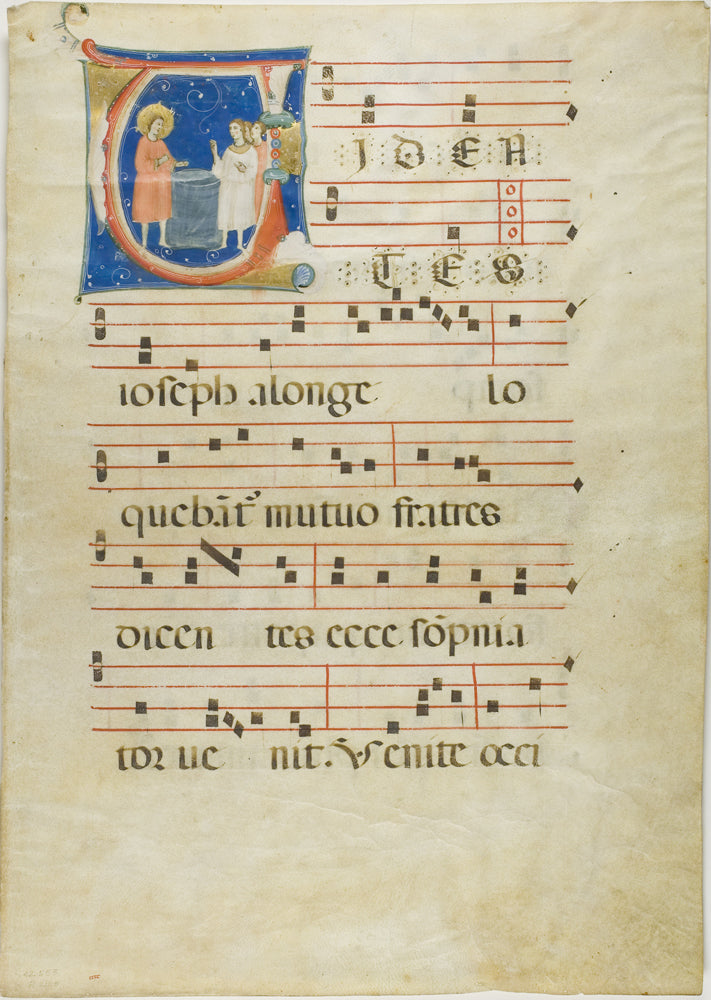 VIDEN
TES
ioseph a longe lo
quebãt᷒ mutuo fratres
dicen tes ecce sõpnia
tor ue nit. ℣. Venite occi